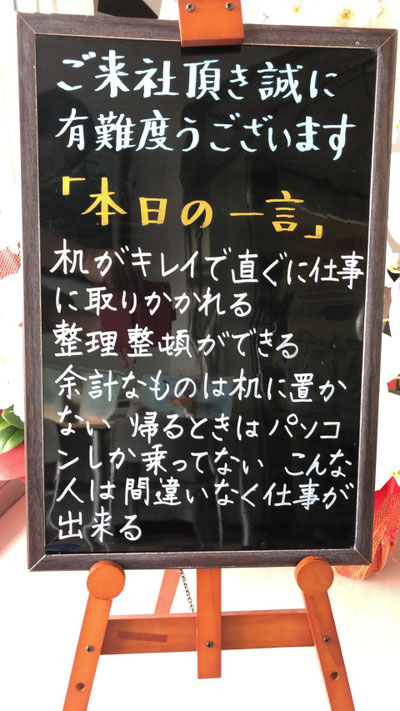 ご来社頂き誠に
有難度うございます
「本日の一言」
机がキレイで直ぐに仕事
に取りかかれる
整理整頓ができる
余計なものは机に置か
ない 帰るときはパソコ
ンしか乗ってない こんな
人は間違いなく仕事が
出来る